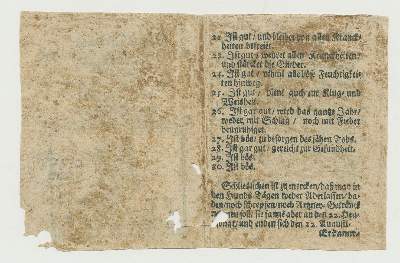 22. Ist gut / und bleibet von allen Kranck-
heiten befreiet.
23. Ist gut / wehret allen Kranckheiten /
und stärcket die Glieder.
24. Ist gut / nimmt alle böse Feuchtigkei-
ten hinweg.
25. Ist gut / dient auch zur Klug- und
Weisheit.
26. Ist gar gut / wird das gantze Jahr /
weder mit Schlag / noch mit Fieber
beunruhiget.
27. Ist bös / zu besorgen des jähen Tods.
28. Ist gar gut / gereicht zur Gesundheit.
29. Ist bös.
30. Ist bös.
Schließlichen ist zu mercken / daß man in
den Hunds-Tägen weder Aderlassen / ba-
den / noch schrepfen / noch Artzney-Getränck
soll / sie fangt aber an den 22. Heu-
monat / und enden sich den 22. Augusti.